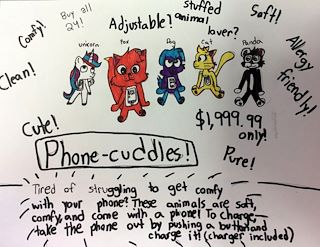 Comfy!
Buy all
24!
Adjustable!
Stuffed
animal
lover?
Soft!
Allergy
friendly!
Clean!
Unicorn
Fox
Dog
Cat
Panda
Cute!
$1,999.99
only!
Phone-cuddles!
Pure!
Tired of struggling to get comfy
with your phone? These animals are soft,
comfy, and come with a phone! To charge,
take the phone out by pushing a button and
charge it! (charger included)